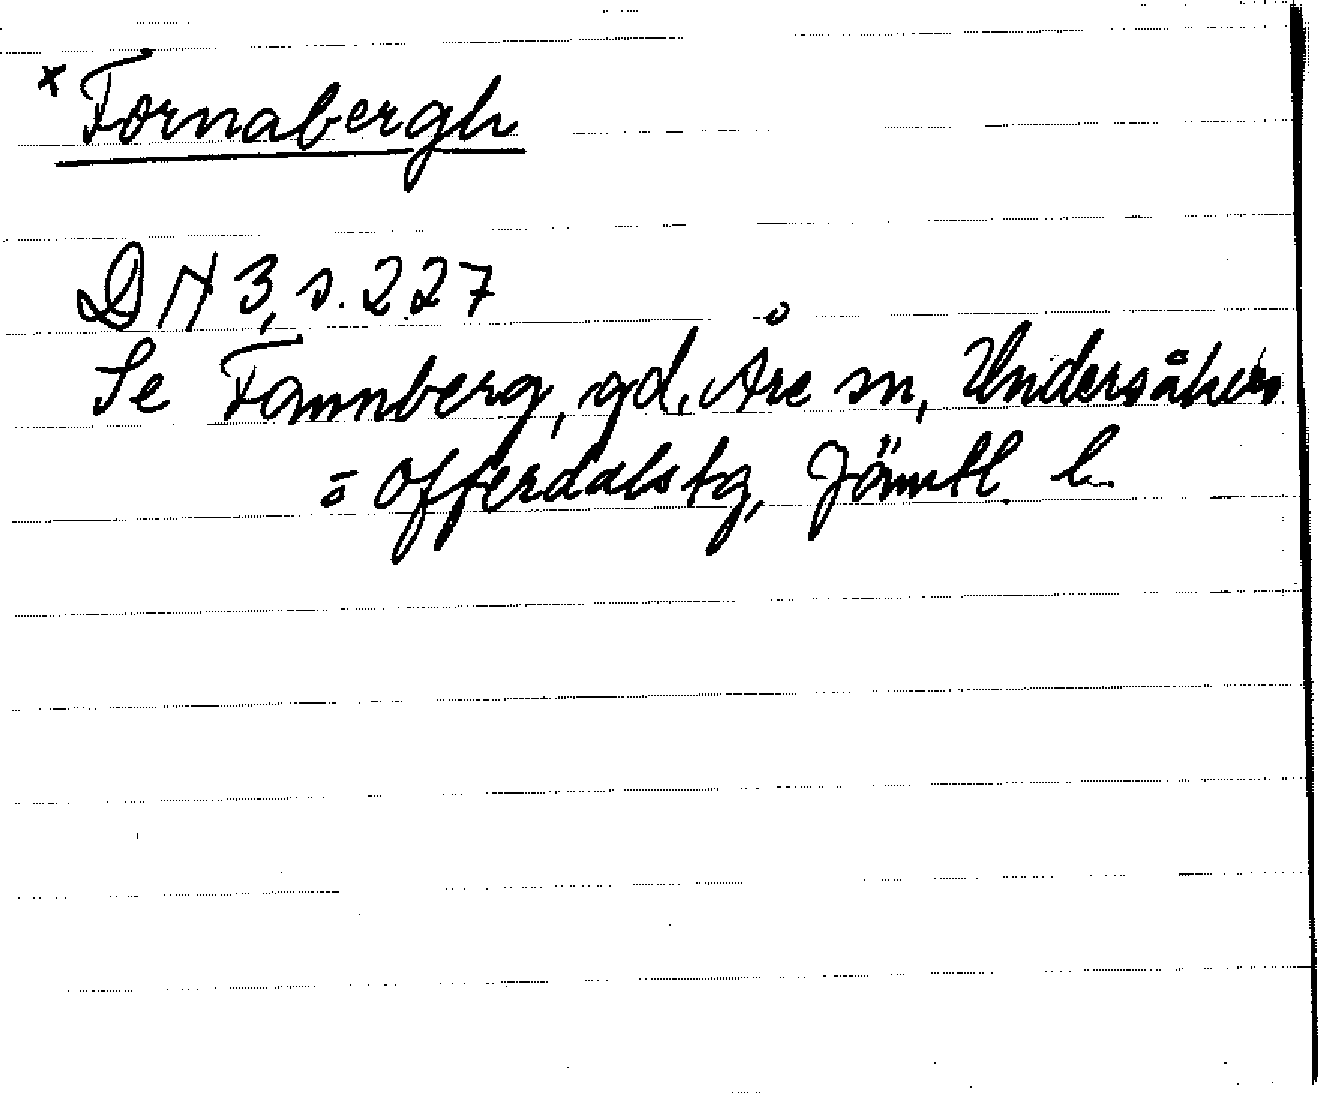 x Fornabergh
DN 3, s. 227
Se Fannberg, gd, Åre sn, Undersåkers
o Offerdals tg, Jämtl. l.